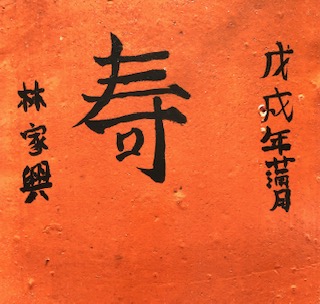 戊戌年蒲月
寿
林家興